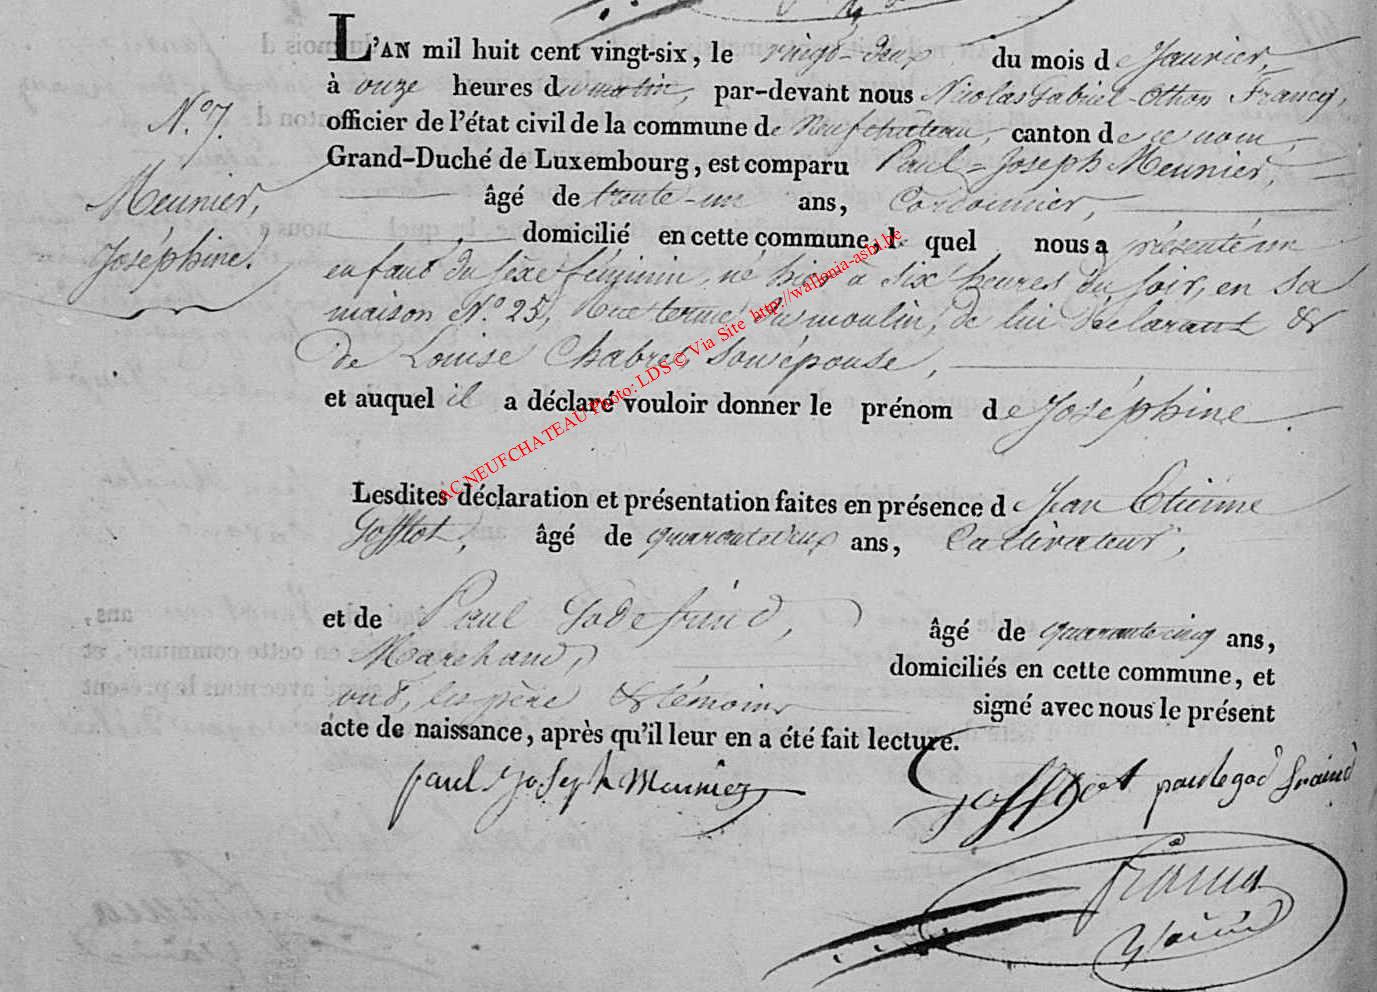 L'AN mil huit cent vingt-six, le vingt-deux du mois de Janvier,
à onze heures du matin, par-devant nous Nicolas Gabriel-Othon Francq,
officier de l'état civil de la commune de Neufchâteau, canton de ce nom,
Grand-Duché de Luxembourg, est comparu Paul-Joseph Meunier,
âgé de trente-un ans, Cordonnier,
domicilié en cette commune, lequel nous a présenté un
enfant du sexe féminin, né hier à six heures du soir, en sa
maison N.° 25, du moulin, de lui déclarant &
de Louise Chabres, son épouse,
et auquel il a déclaré vouloir donner le prénom de Joséphine.
N.° 7.
Meunier,
Joséphine.
Lesdites déclaration et présentation faites en présence de Jean Etienne
Gofflot, âgé de quarante deux ans, Cultivateur,
et de Paul Godefrind, âgé de quarante cinq ans,
Marchand, domiciliés en cette commune, et
ont, les père & témoins signé avec nous le présent
acte de naissance, après qu'il leur en a été fait lecture.
paul joseph Meunier Gofflot paul
AC NEUFCHATEAU Photo: LDS © Via Site http://wallonia-asbl.be